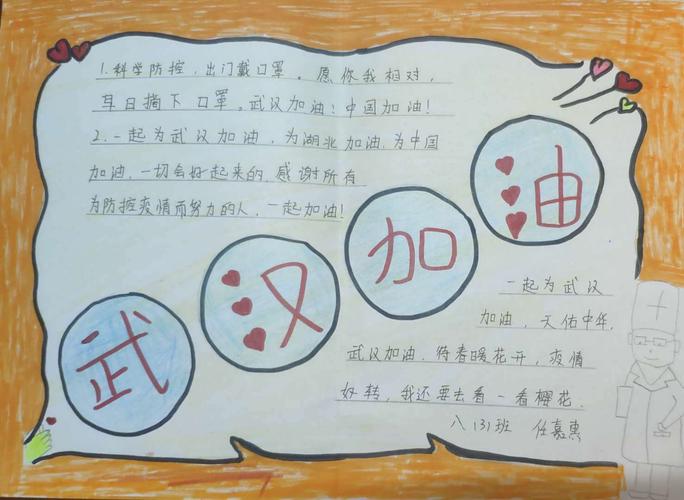 1.科学防控，出门戴口罩。愿你我相对，
早日摘下口罩。武汉加油！中国加油！
2.一起为武汉加油，为湖北加油，为中国
加油，一切会好起来的，感谢所有
为防控疫情而努力的人，一起加油！
武汉加油
一起为武汉
加油，天佑中华，
武汉加油，待春暖花开，疫情
好转，我还要去看一看樱花.
八(3)班 任嘉惠